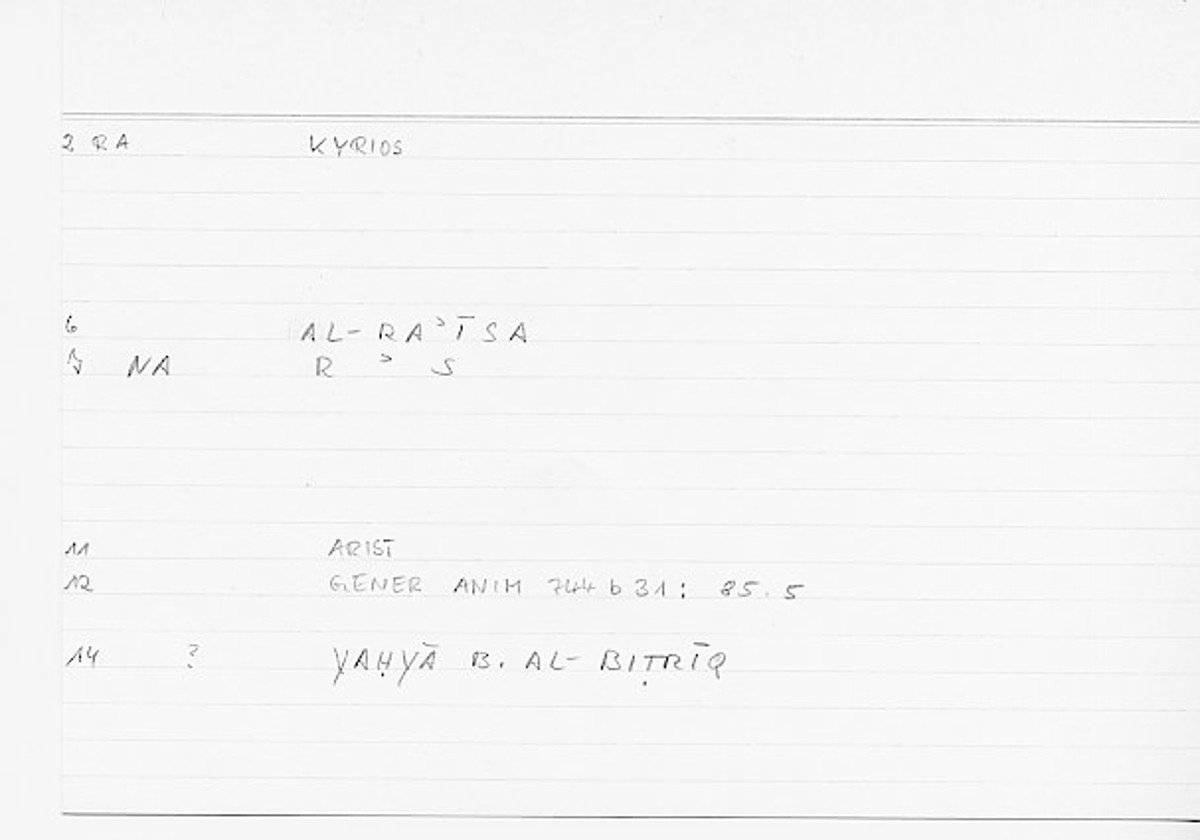 2 RA KYRIOS
6 AL-RAʾĪSA
NA R ʾ S
11 ARIST
12 GENER ANIM 744 b 31: 85.5
14 ? YAḤYĀ B. AL-BIṬRĪQ